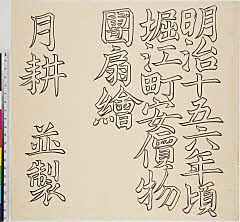 明治十五六年頃
堀江町安價物
團扇繪
月耕 並製